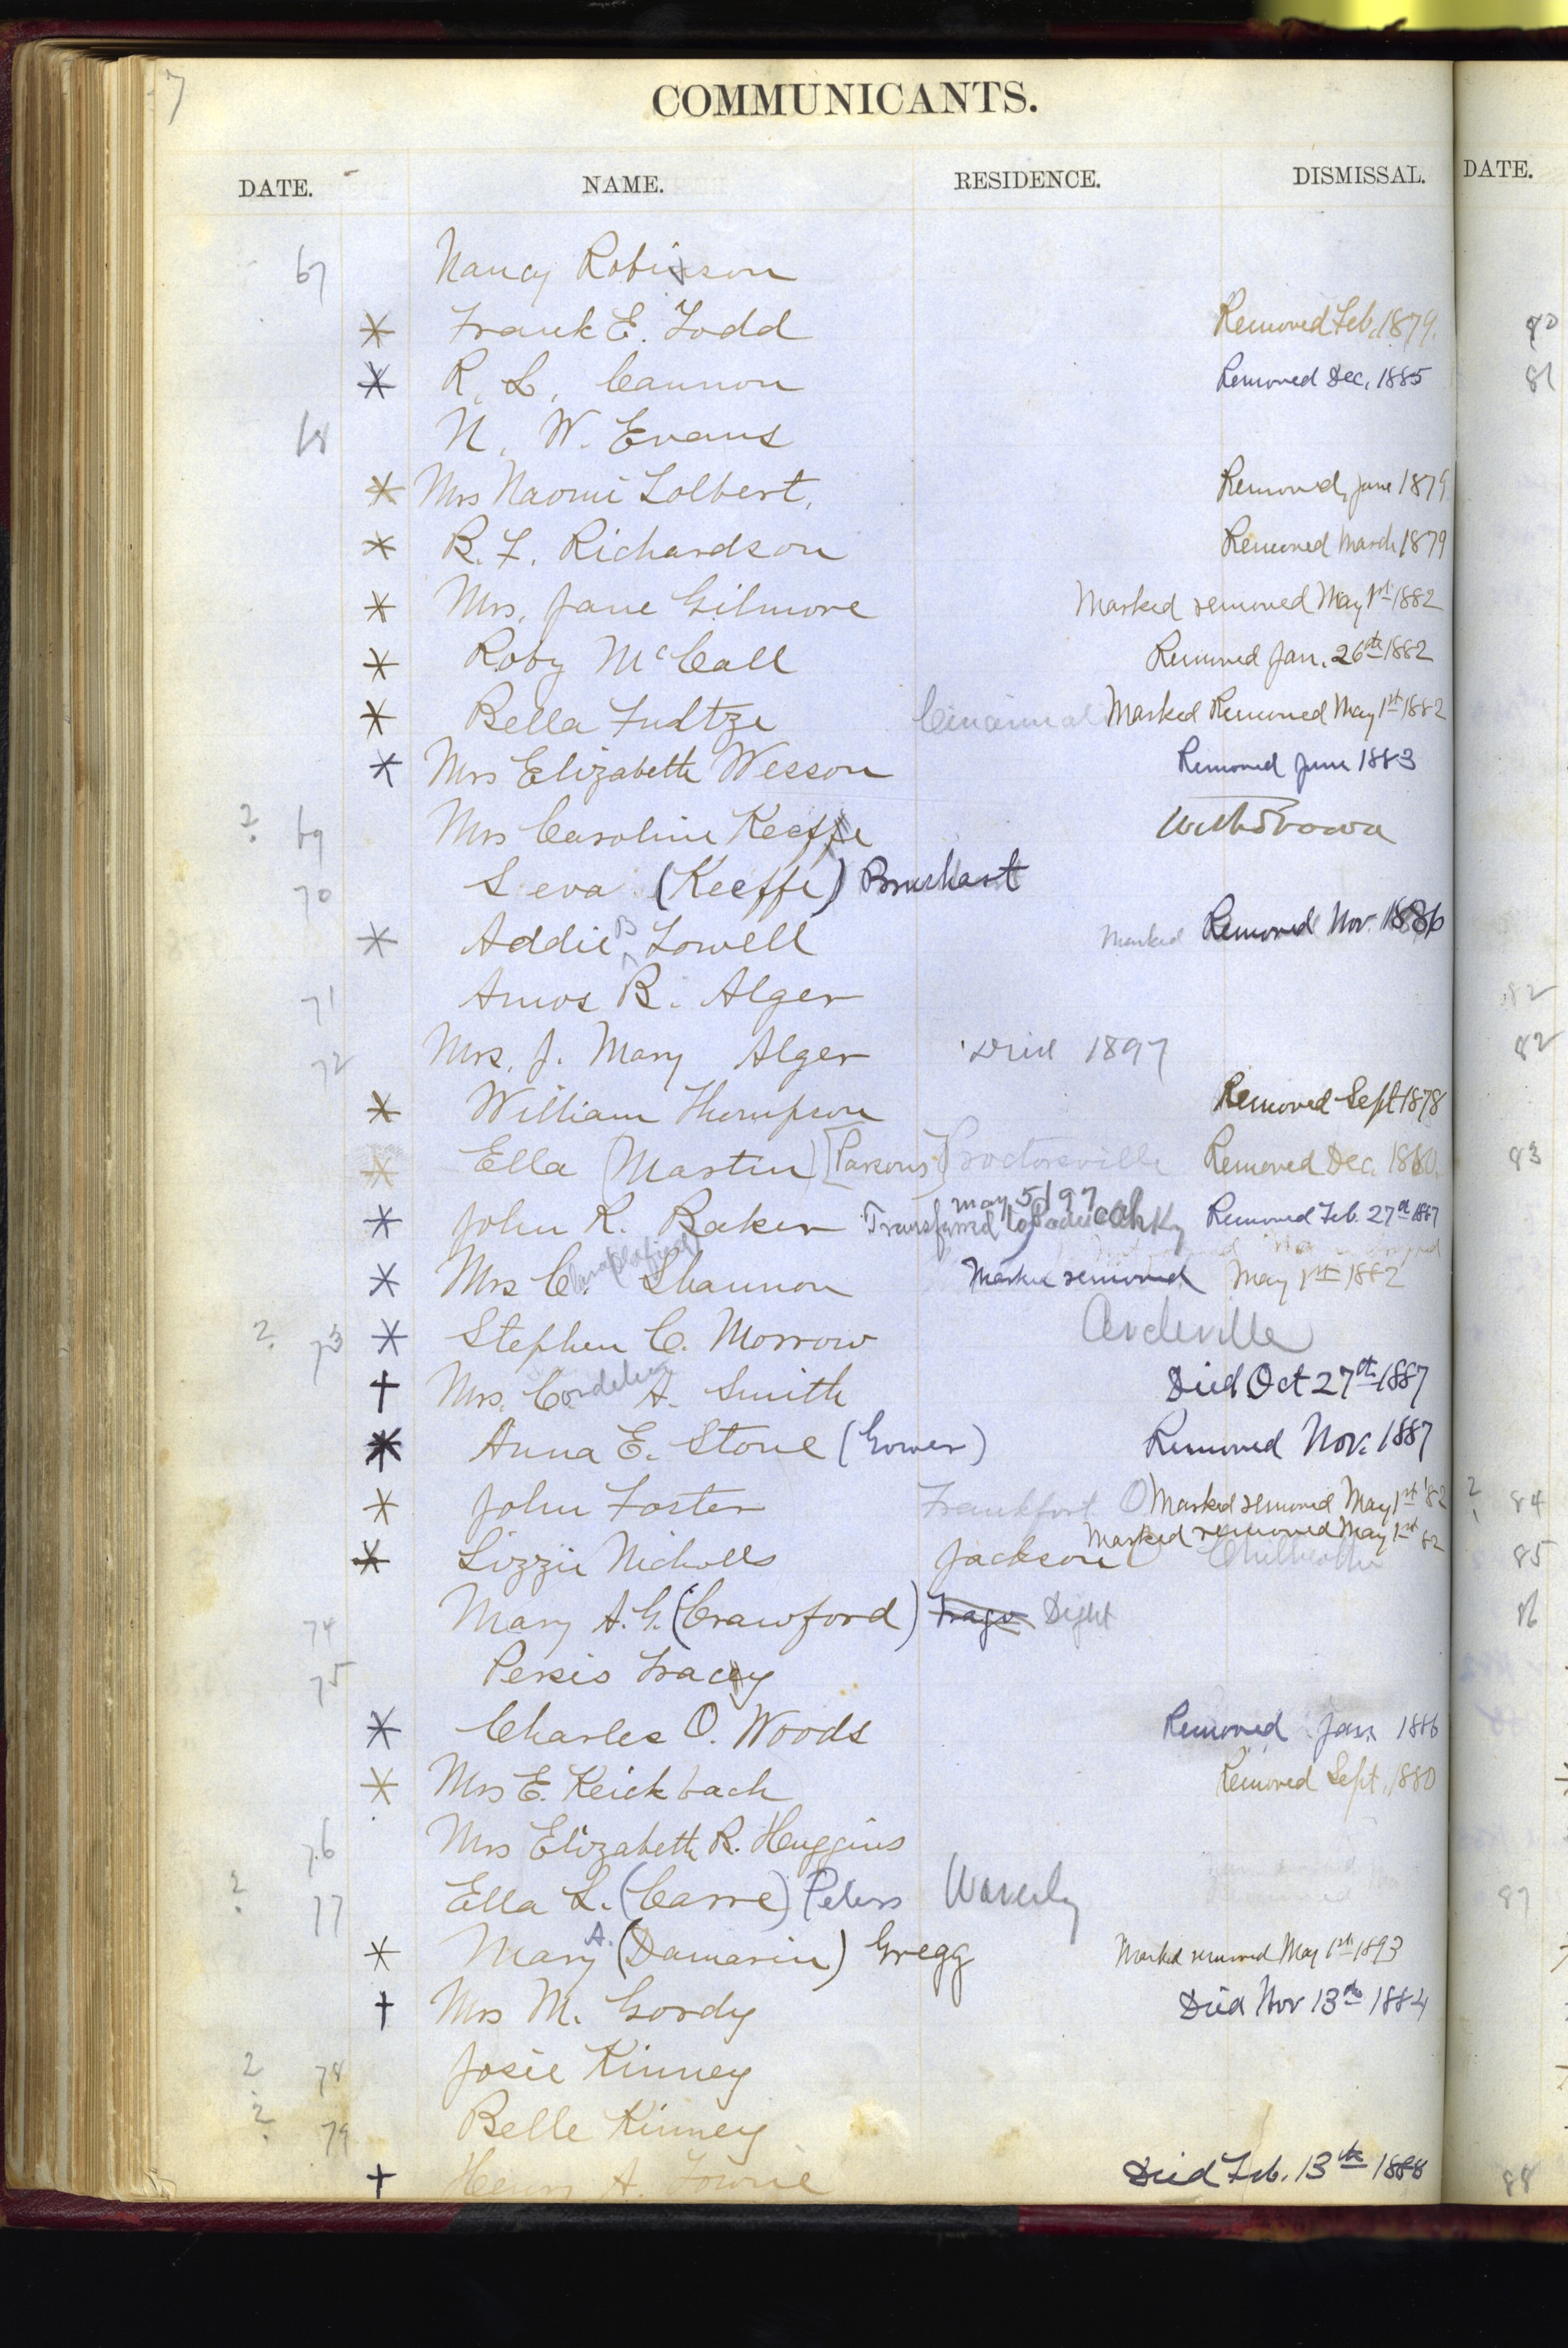 7
COMMUNICANTS.
DATE. NAME. RESIDENCE. DISMISSAL. DATE.
67 Nancy Robinson
* Frank E. Todd Removed Feb. 1879. 80
* R. L. Cannon Removed Dec. 1885 81
68 N. W. Evans
* Mrs Naomi Tolbert, Removed, June 1879
* B. F. Richardson Removed March 1879
* Mrs. Jane Gilmore Marked removed May 1st 1882
* Roby McCall Removed Jan. 26th 1882
* Bella Marked Removed May 1st 1882
* Mrs Elizabeth Wesson Removed June 1883
? 69 Mrs Caroline Keeffe Withdrawn
70 Seva (Keeffe) Brushart
* Addie B Lowell Marked Removed Nov. 1886
71 Amos B. Alger 82
72 Mrs. J. Mary Alger Died 1897 82
* William Thompson Removed Sept 1878
* Ella (Martin) [Parsons] Proctorsville Removed Dec. 1880. 83
May 5/97
* John R. Baker Transferred to Paducah Ky Removed Feb. 27th 1887
* Mrs C. Shannon Marked removed May 1st 1882
? 73 * Stephen C. Morrow Circleville
† Mrs. Cordelia A. Smith Died Oct 27th 1887
* Anna E. Stone (Gower) Removed Nov. 1887
* John Foster Frankfort O Marked removed May 1st '82 ? 84
Marked removed May 1st 82
* Lizzie Nicholls Jackson O Chillicothe 85
74 Mary A. G. (Crawford) Dight 86
75 Persis Tracy
* Charles O. Woods Removed Jan. 1886
* Mrs E. Keickbach Removed Sept. 1880
76 Mrs Elizabeth R. Huggins
? 77 Ella L. (Carre) Peters Waverly 87
* Mary A. (Damarin) Gregg Marked removed May 1st 1893
† Mrs M. Gordy Died Nov 13th 1884
? 78 Josie Kinney
? 79 Belle Kinney
† Henry A. Towne Died Feb. 13th 1888 88